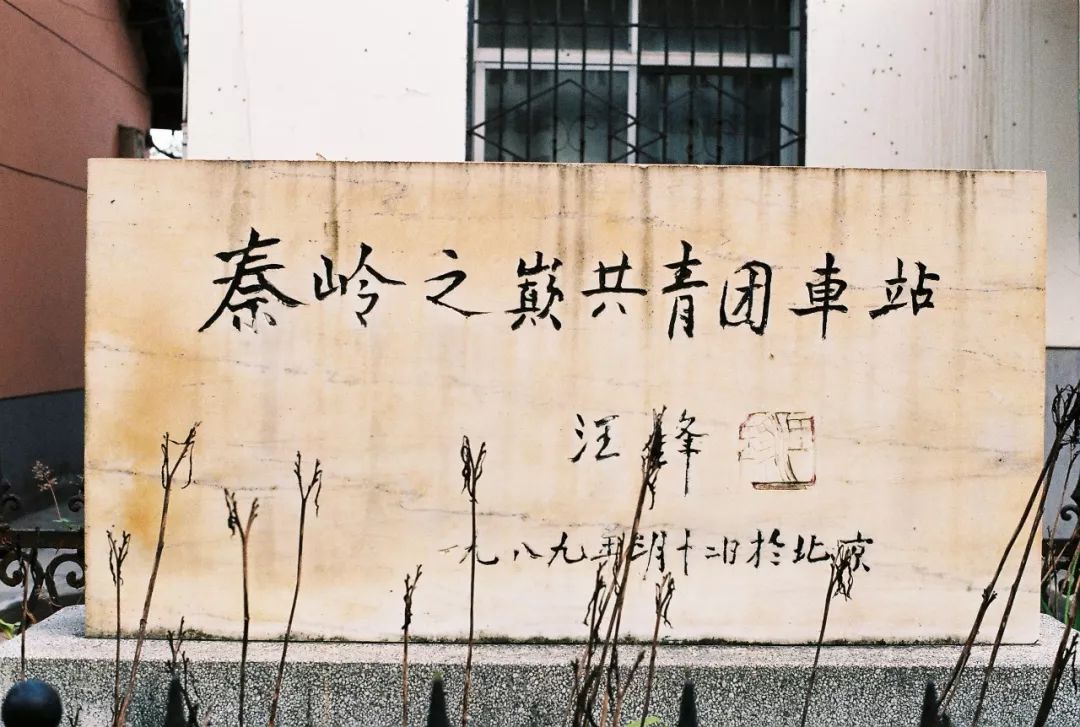 秦岭之巅共青团車站
汪锋
一九八九年月十二日於北京